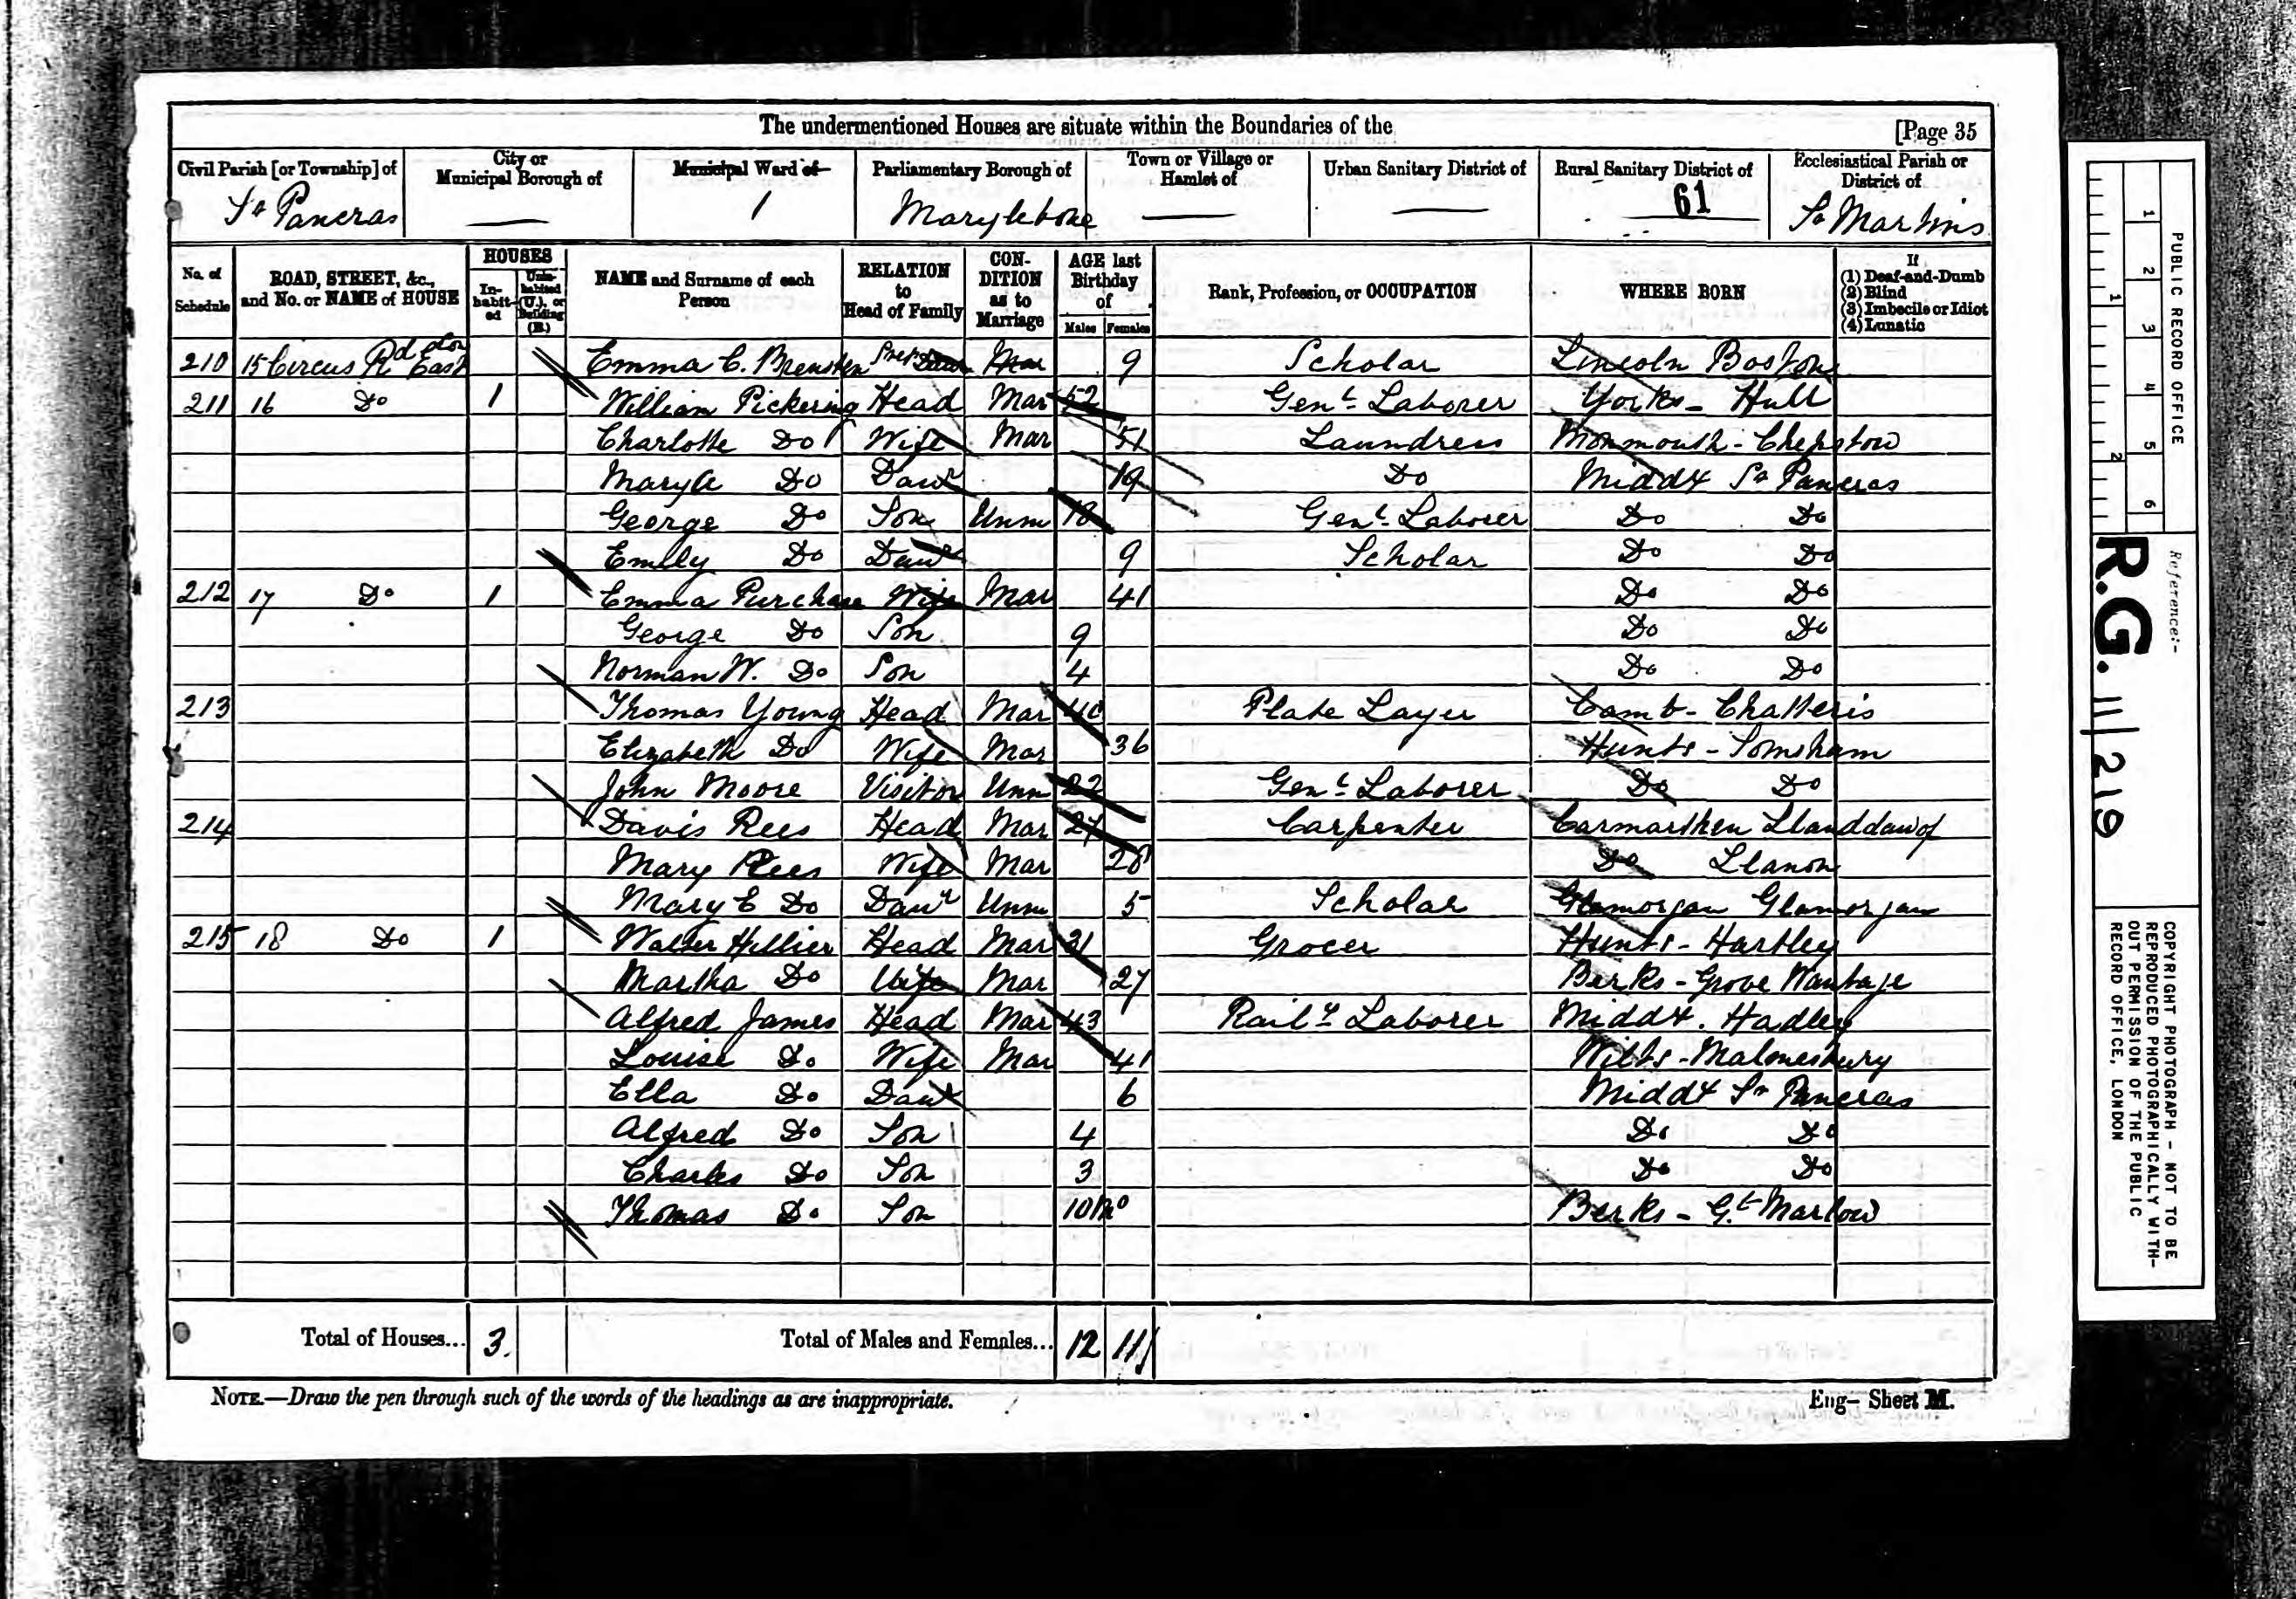 The undermentioned Houses are situate within the Boundaries of the [Page 35
Civil Parish [or Township] of
St Pancras
City or Municipal Borough of
—
Municipal Ward of
1
Parliamentary Borough of
Marylebone
Town or Village or Hamlet of
—
Urban Sanitary District of
—
Rural Sanitary District of
61
Ecclesiastical Parish or District of
St Martins
No. of Schedule
ROAD, STREET, &c., and No. or NAME of HOUSE
HOUSES
In-habit-ed
Unin-habited (U.), or Building (B.)
NAME and Surname of each Person
RELATION to Head of Family
CON-DITION as to Marriage
AGE last Birthday of
Males Females
Rank, Profession, or OCCUPATION
WHERE BORN
If
(1) Deaf-and-Dumb
(2) Blind
(3) Imbecile or Idiot
(4) Lunatic
210 15 Circus Rd East Emma C. 9 Scholar Lincoln Boston
211 16 Do 1 William Pickering Head Mar 52 Genl Laborer Yorks - Hull
Charlotte Do Wife Mar 51 Laundress Monmouth - Chepstow
Do Daur 19 Do Middx St Pancras
George Do Son Unm 18 Genl Laborer Do Do
Emily Do Daur 9 Scholar Do Do
212 17 Do 1 Emma Purchase Wife Mar 41 Do Do
George Do Son 9 Do Do
Norman W. Do Son 4 Do Do
213 Thomas Young Head Mar 40 Plate Layer Camb - Chatteris
Elizabeth Do Wife Mar 36 Hunts - Somsham
John Moore Visitor Unm 22 Genl Laborer Do Do
214 Davis Rees Head Mar 27 Carpenter Carmarthen
Mary Rees Wife Mar 28 Do Llanon
Mary E Do Daur Unm 5 Scholar Glamorgan Glamorgan
215 18 Do 1 Walter Hillier Head Mar 31 Grocer Hunts - Hartley
Martha Do Wife Mar 27 Berks - Grove Wantage
Alfred James Head Mar 43 Raily Laborer Middx. Hadley
Louisa Do Wife Mar 41 Wilts - Malmesbury
Ella Do Daur 6 Middx St Pancras
Alfred Do Son 4 Do Do
Charles Do Son 3 Do Do
Thomas Do Son 10 Mo Berks - Gt Marlow
Total of Houses... 3.
Total of Males and Females... 12 11
NOTE.—Draw the pen through such of the words of the headings as are inappropriate.
Eng— Sheet M.
PUBLIC RECORD OFFICE
1 2 3 4 5 6
1 2
Reference:-
R.G. 11/219
COPYRIGHT PHOTOGRAPH - NOT TO BE
REPRODUCED PHOTOGRAPHICALLY WITH-
OUT PERMISSION OF THE PUBLIC
RECORD OFFICE, LONDON